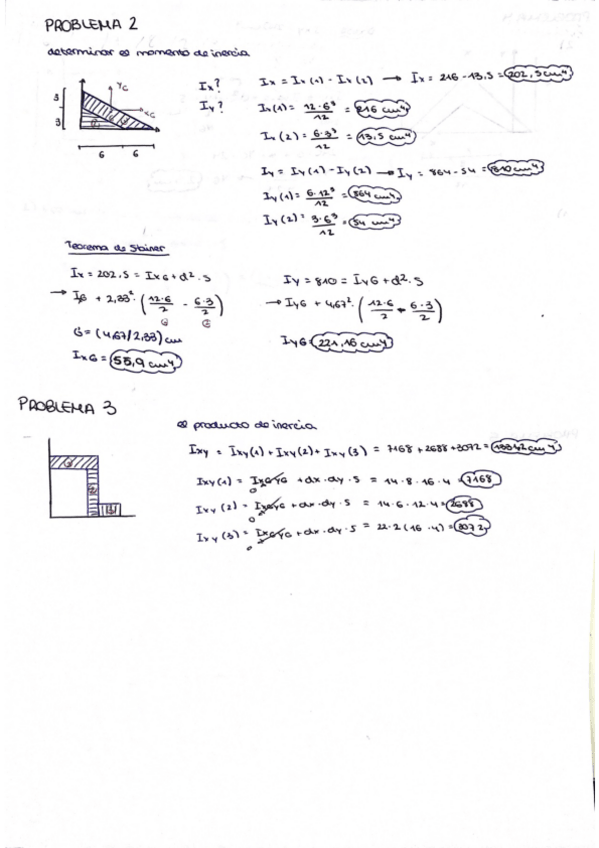 PROBLEMA 2
determinar es momento de inercia
3
3
6 6
yc
xc
Ix?
Iy?
Ix = Ix(1) - Ix(2) → Ix = 216 - 13,5 = 202,5 cm⁴
Ix(1) = 12·6³/12 = 216 cm⁴
Ix(2) = 6·3³/12 = 13,5 cm⁴
Iy = Iy(1) - Iy(2) → Iy = 864 - 54 = 810 cm⁴
Iy(1) = 6·12³/12 = 864 cm⁴
Iy(2) = 3·6³/12 = 54 cm⁴
Teorema de Stainer
Ix = 202.5 = IxG + d²·S
→ IG + 2,33²·(12·6/2 - 6·3/2)
G = (4,67/2,33) cm
IxG = 55,9 cm⁴
Iy = 810 = IyG + d²·S
→ IyG + 4,67²·(12·6/2 - 6·3/2)
IyG = 221,16 cm⁴
PROBLEMA 3
es producto de inercia
Ixy = Ixy(1) + Ixy(2) + Ixy(3) = 7168 + 2688 + 3072 =
Ixy(1) = IxGyG + dx·dy·S = 14·8·16·4 = 7168
0
Ixy(2) = IxGyG + dx·dy·S = 14·6·12·4 = 2688
0
Ixy(3) = IxGyG + dx·dy·S = 22·2(16·4) = 3072
0